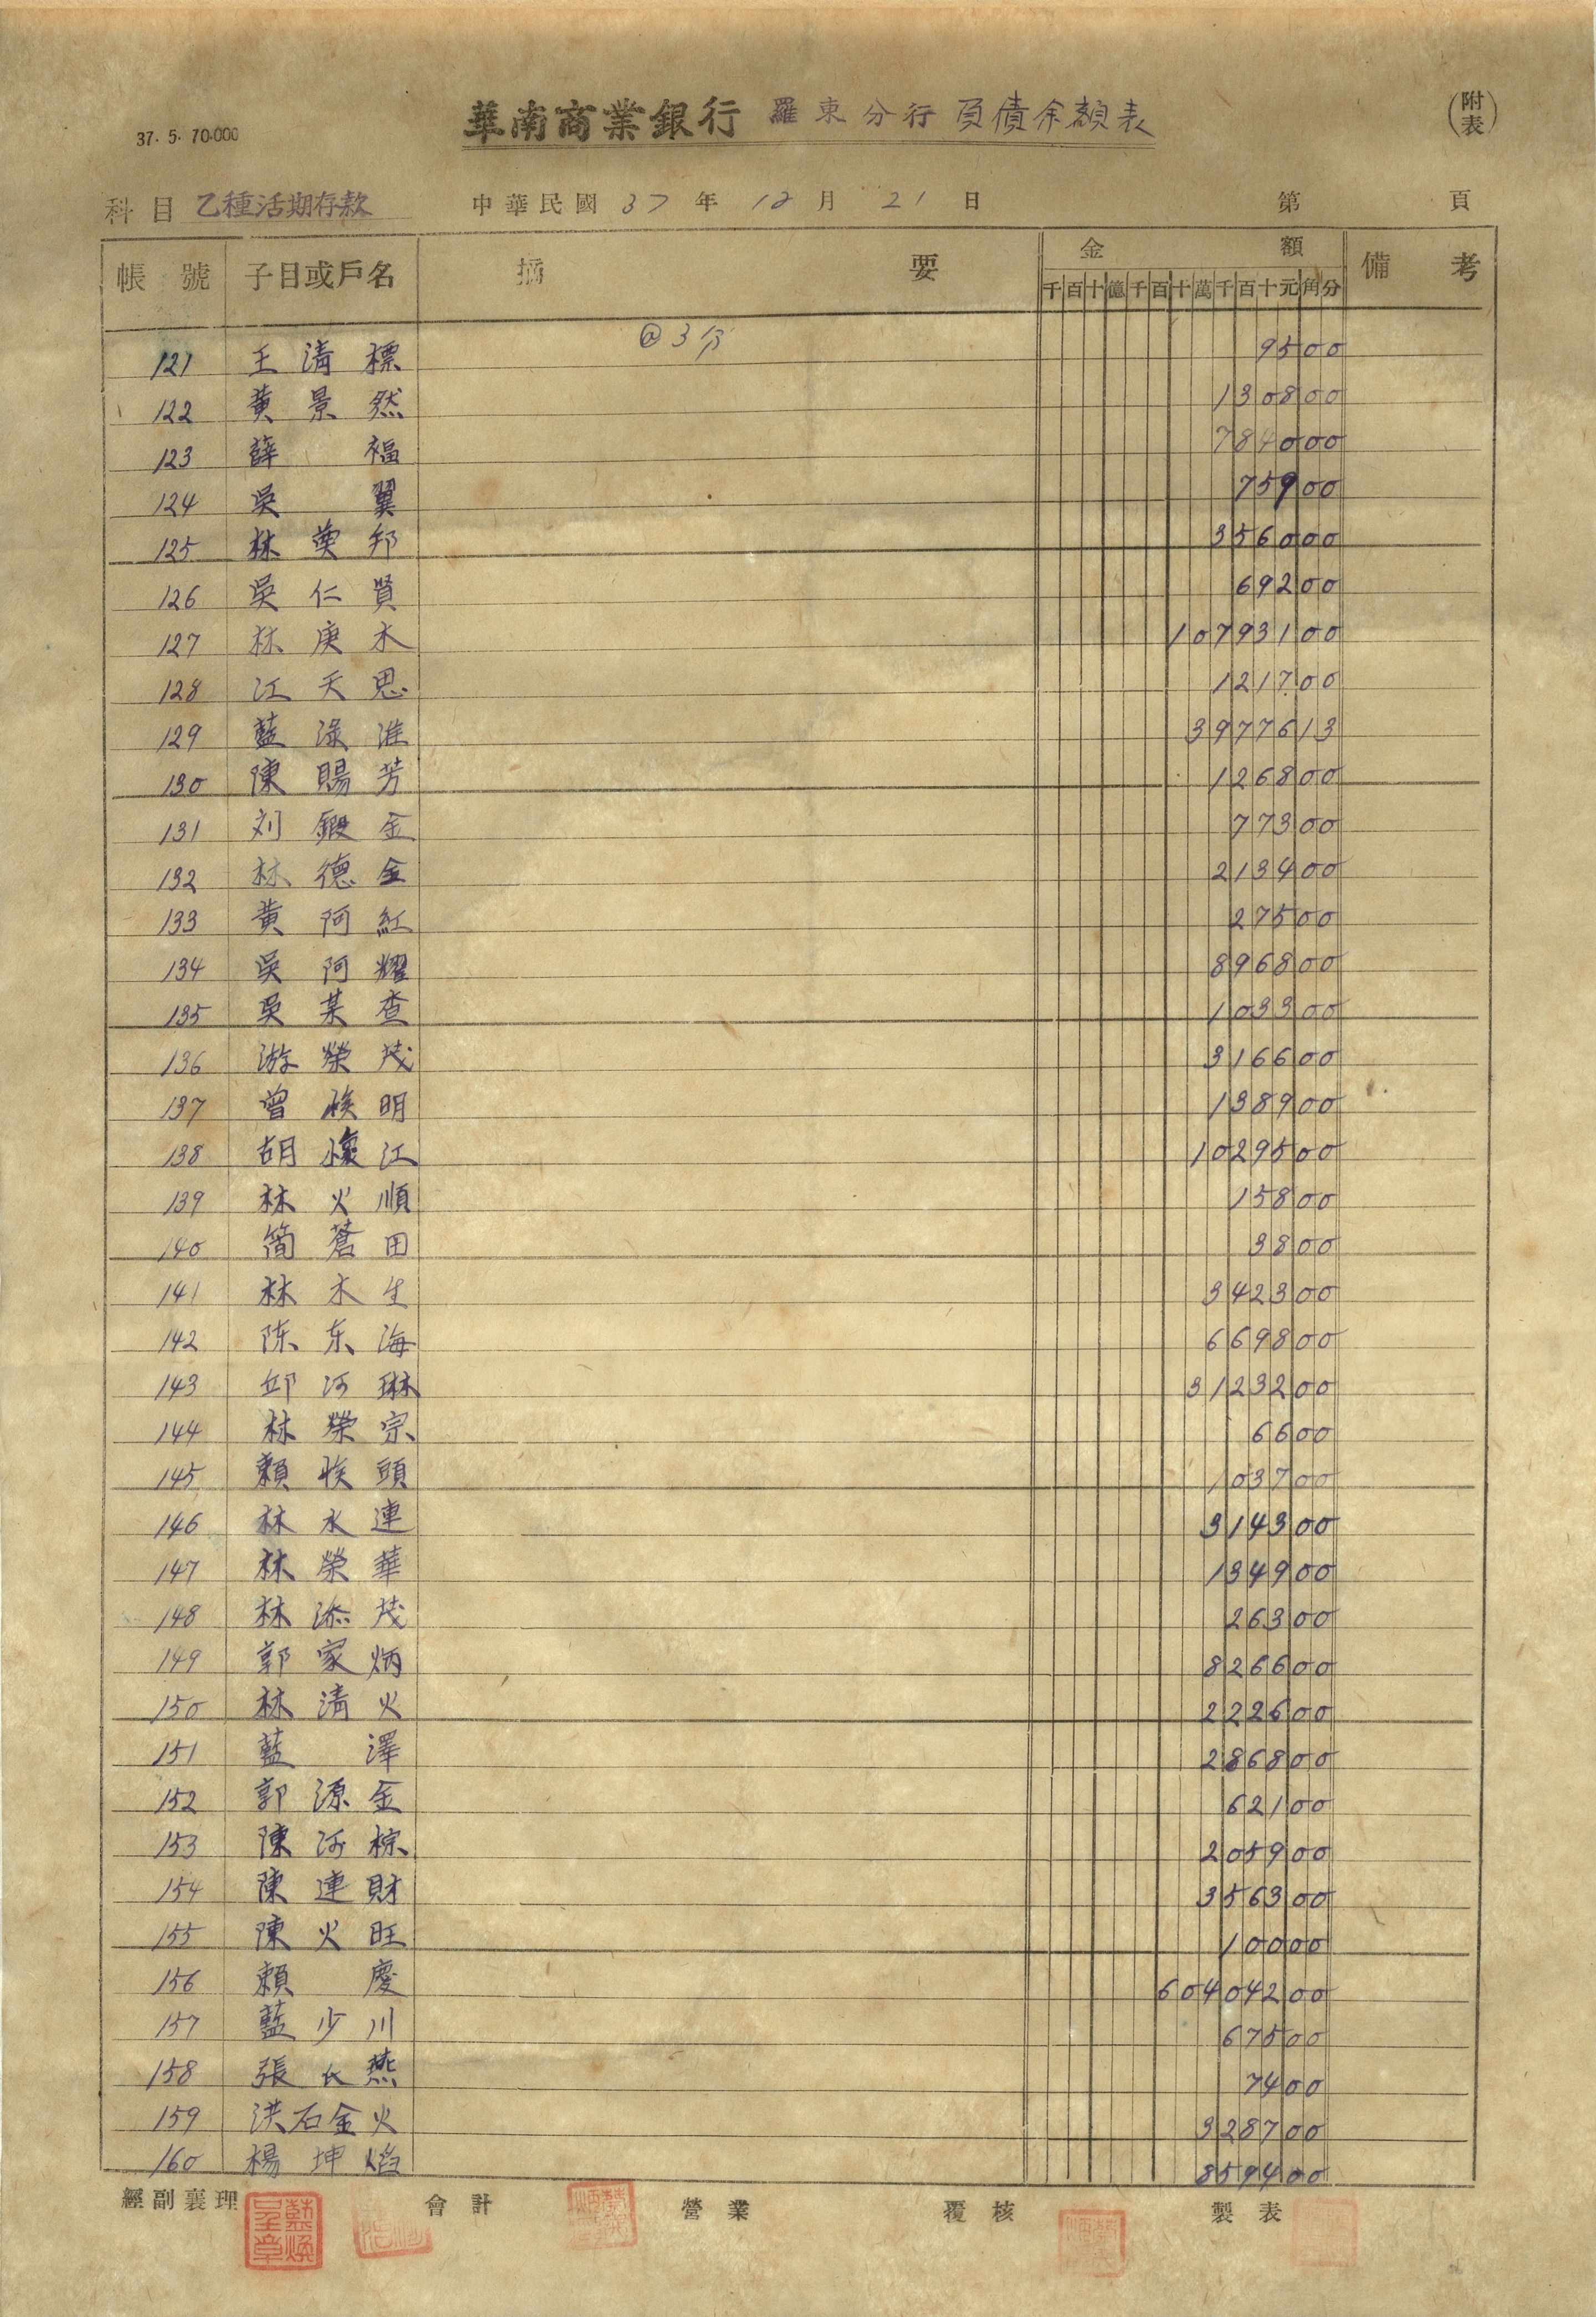 37. 5. 70.000
華南商業銀行 羅東分行 負債余額表
(附表)
科目 乙種活期存款 中華民國 37 年 12 月 21 日 第 頁
帳號 子目或戶名 摘要 金額 備考
千百十億千百十萬千百十元角分
@ 3分
121 王清標 9500
122 黃景然 130800
123 薛福 784000
124 吳翼 75900
125 林萸邦 356000
126 吳仁賢 69200
127 林庚木 10793100
128 江天思 121700
129 藍淥淮 3977613
130 陳賜芳 126800
131 刘鍛金 77300
132 林德金 213400
133 黃阿紅 27500
134 吳阿耀 896800
135 吳某查 103300
136 游榮茂 316600
137 曾 明 138900
138 胡懷江 1029500
139 林火順 15800
140 簡蒼田 3800
141 林木生 342300
142 陈东海 669800
143 邱河琳 3123200
144 林榮宗 6600
145 賴 頭 103700
146 林水連 314300
147 林榮華 134900
148 林添茂 26300
149 郭家炳 826600
150 林清火 222600
151 藍澤 286800
152 郭源金 62100
153 陳河棕 205900
154 陳連財 356300
155 陳火旺 10000
156 賴慶 60404200
157 藍少川 67500
158 張氏燕 7400
159 洪石金火 328700
160 楊坤焰 859400
經副襄理 會計 營業 覆核 製表